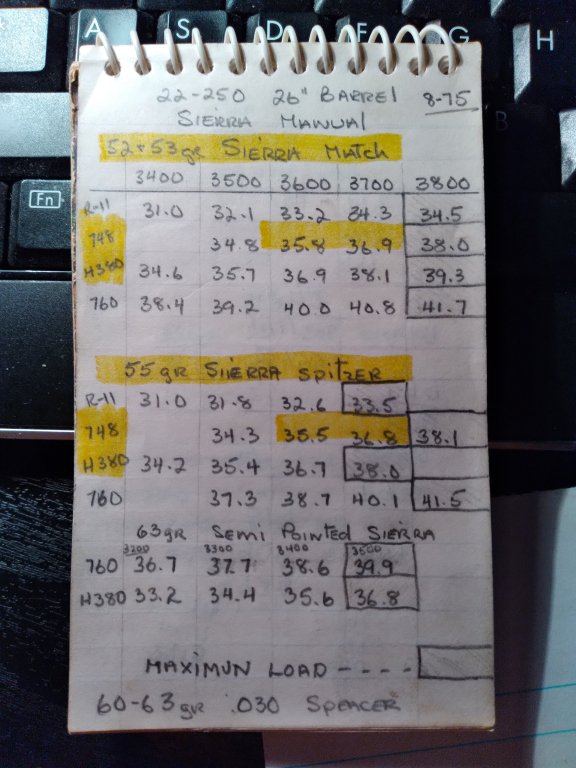 A S D F G H
Fn
22-250 26" BARREL 8-75
SIERRA MANUAL
52+53gr SIERRA MATCH
3400 3500 3600 3700 3800
R-11 31.0 32.1 33.2 34.3 34.5
748 34.8 35.8 36.9 38.0
H380 34.6 35.7 36.9 38.1 39.3
760 38.4 39.2 40.0 40.8 41.7
55gr SIERRA SPITZER
R-11 31.0 31.8 32.6 33.5
748 34.3 35.5 36.8 38.1
H380 34.2 35.4 36.7 38.0
760 37.3 38.7 40.1 41.5
63gr SEMI POINTED SIERRA
3200 3300 3400 3500
760 36.7 37.7 38.6 39.9
H380 33.2 34.4 35.6 36.8
MAXIMUN LOAD ----
60-63gr .030 SPEACER